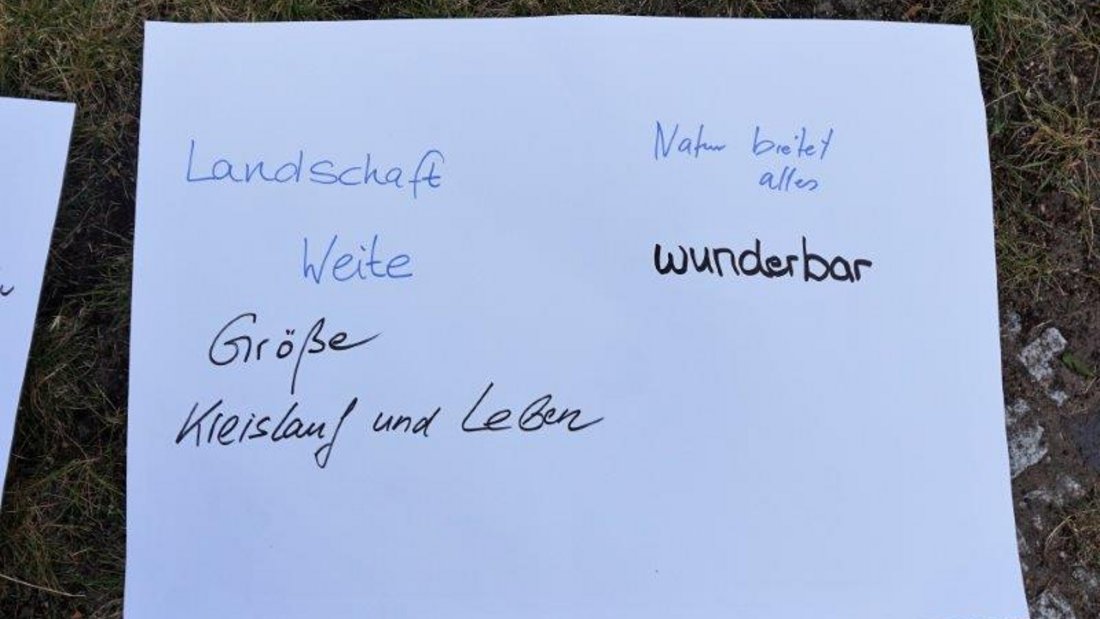 Landschaft
Weite
Größe
Kreislauf und Leben
Natur bietet
alles
wunderbar